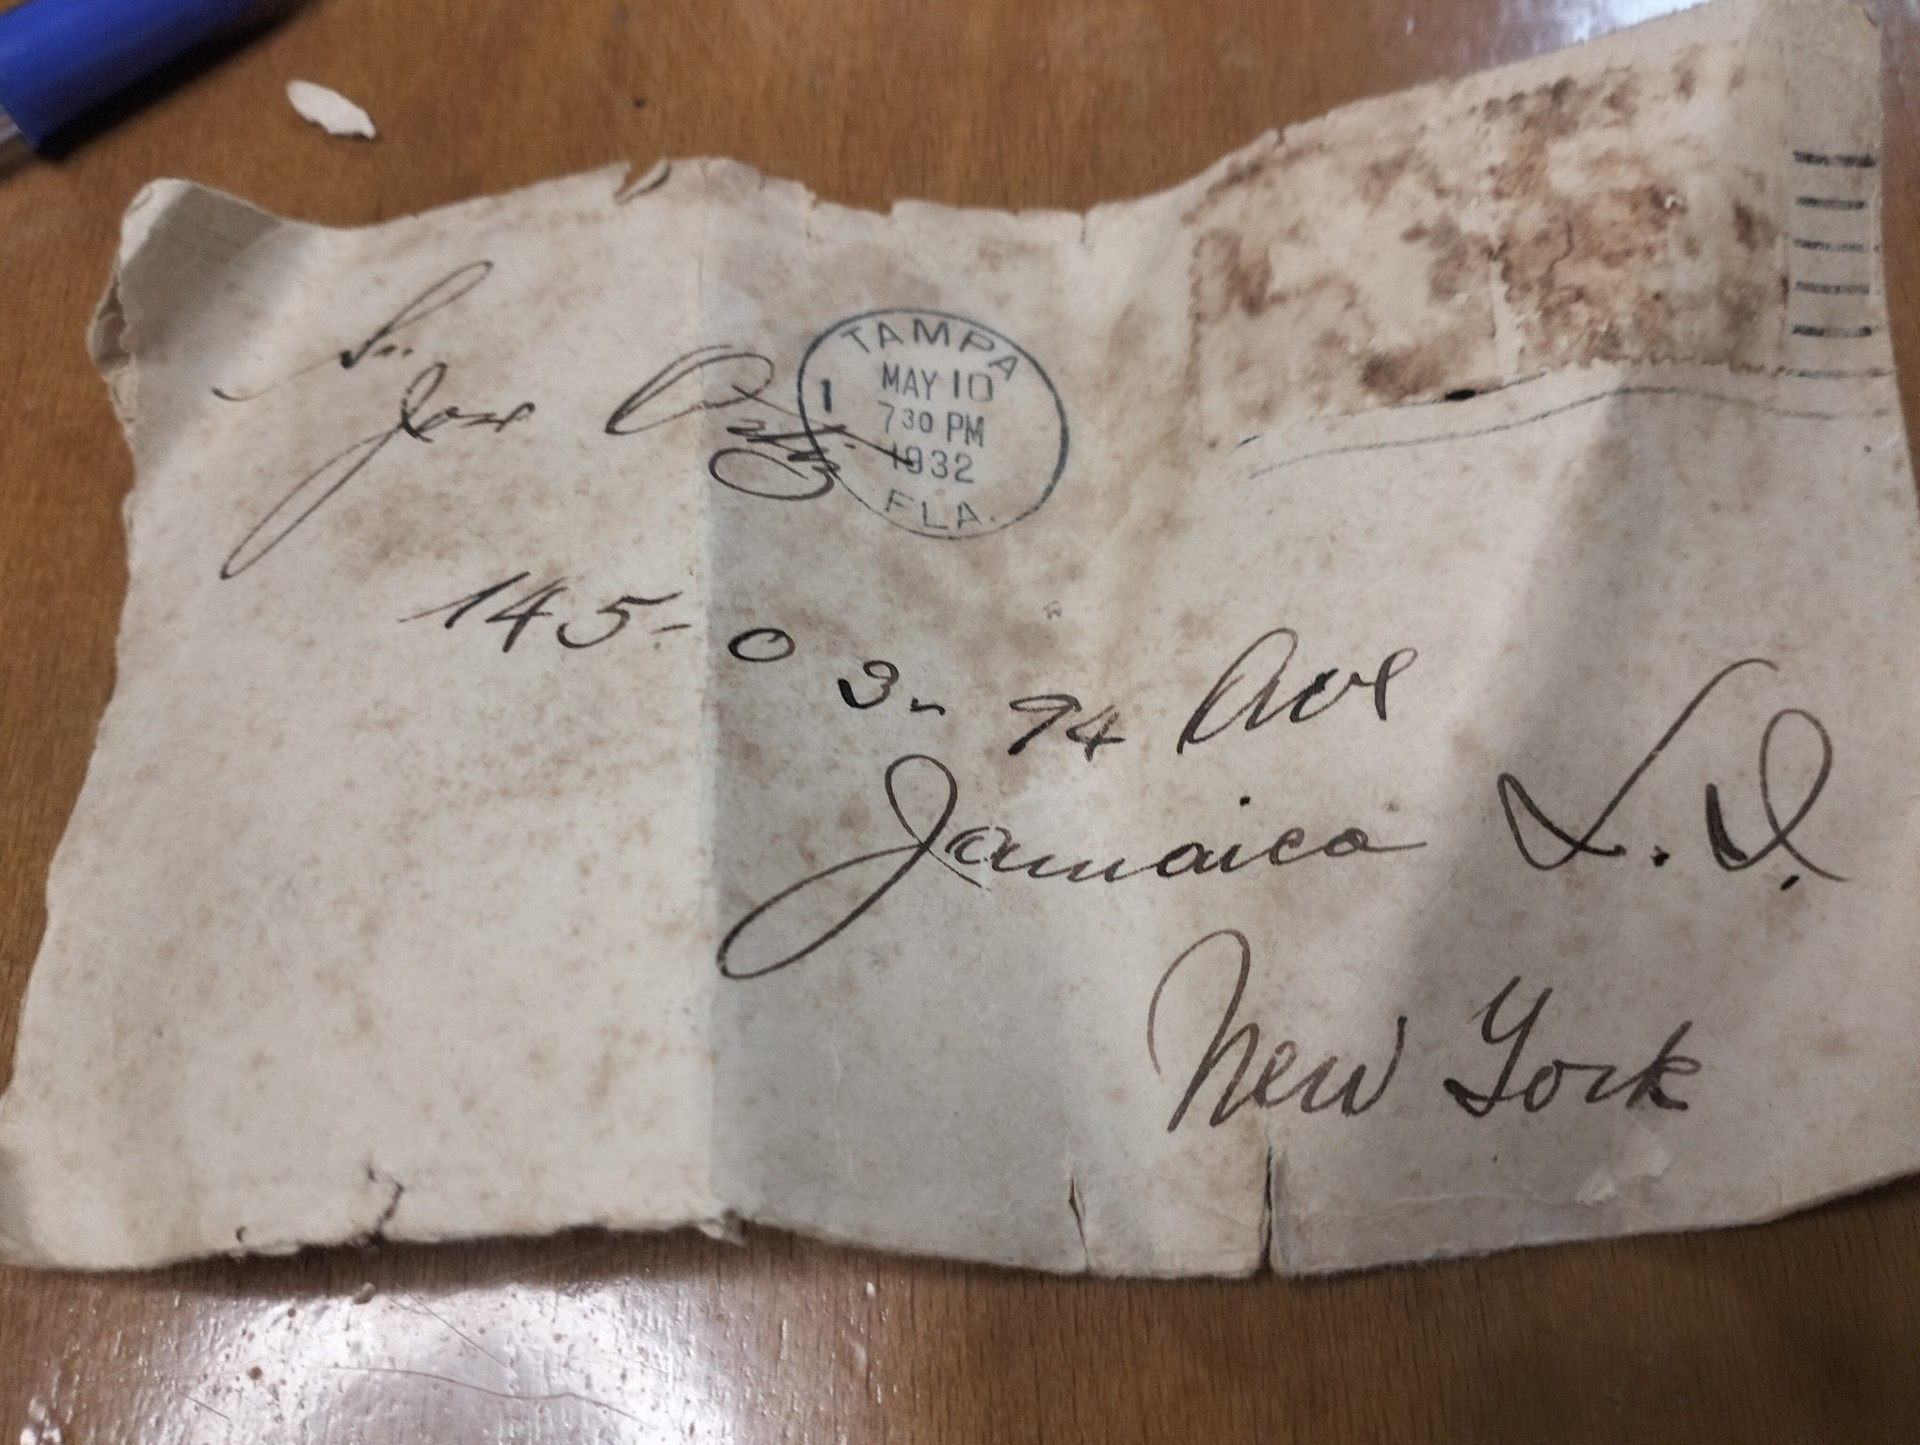 Sr.
Jose Ortiz
TAMPA
MAY 10
1
7 30 PM
1932
FLA.
145-03- 94 Ave
Jamaica L.I.
New York